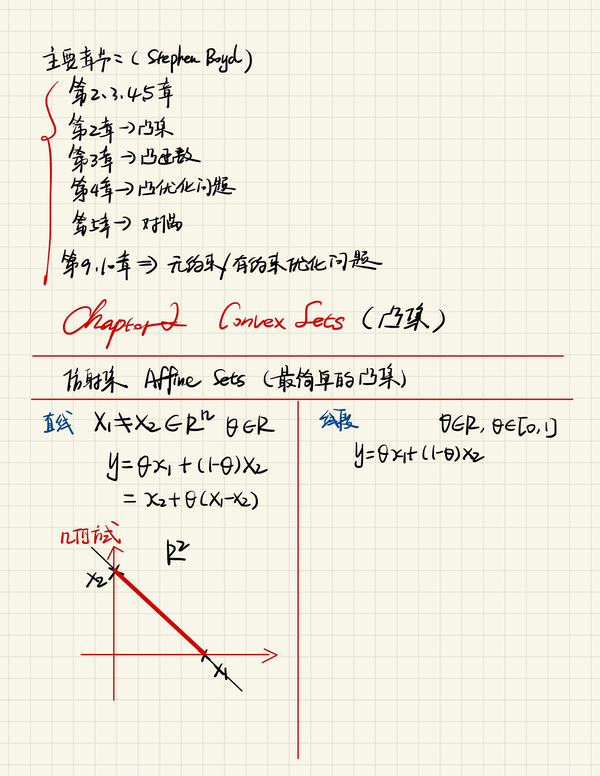 主要章节：(Stephen Boyd)
第2、3、4、5章
第2章→凸集
第3章→凸函数
第4章→凸优化问题
第5章→对偶
第9、10章⇒无约束/有约束优化问题
Chapter 2 Convex Sets (凸集)
仿射集 Affine Sets (最简单的凸集)
直线 x₁≠x₂∈Rⁿ θ∈R
y=θx₁+(1-θ)x₂
=x₂+θ(x₁-x₂)
几何方式
R²
x₂
x₁
线段 θ∈R, θ∈[0,1]
y=θx₁+(1-θ)x₂